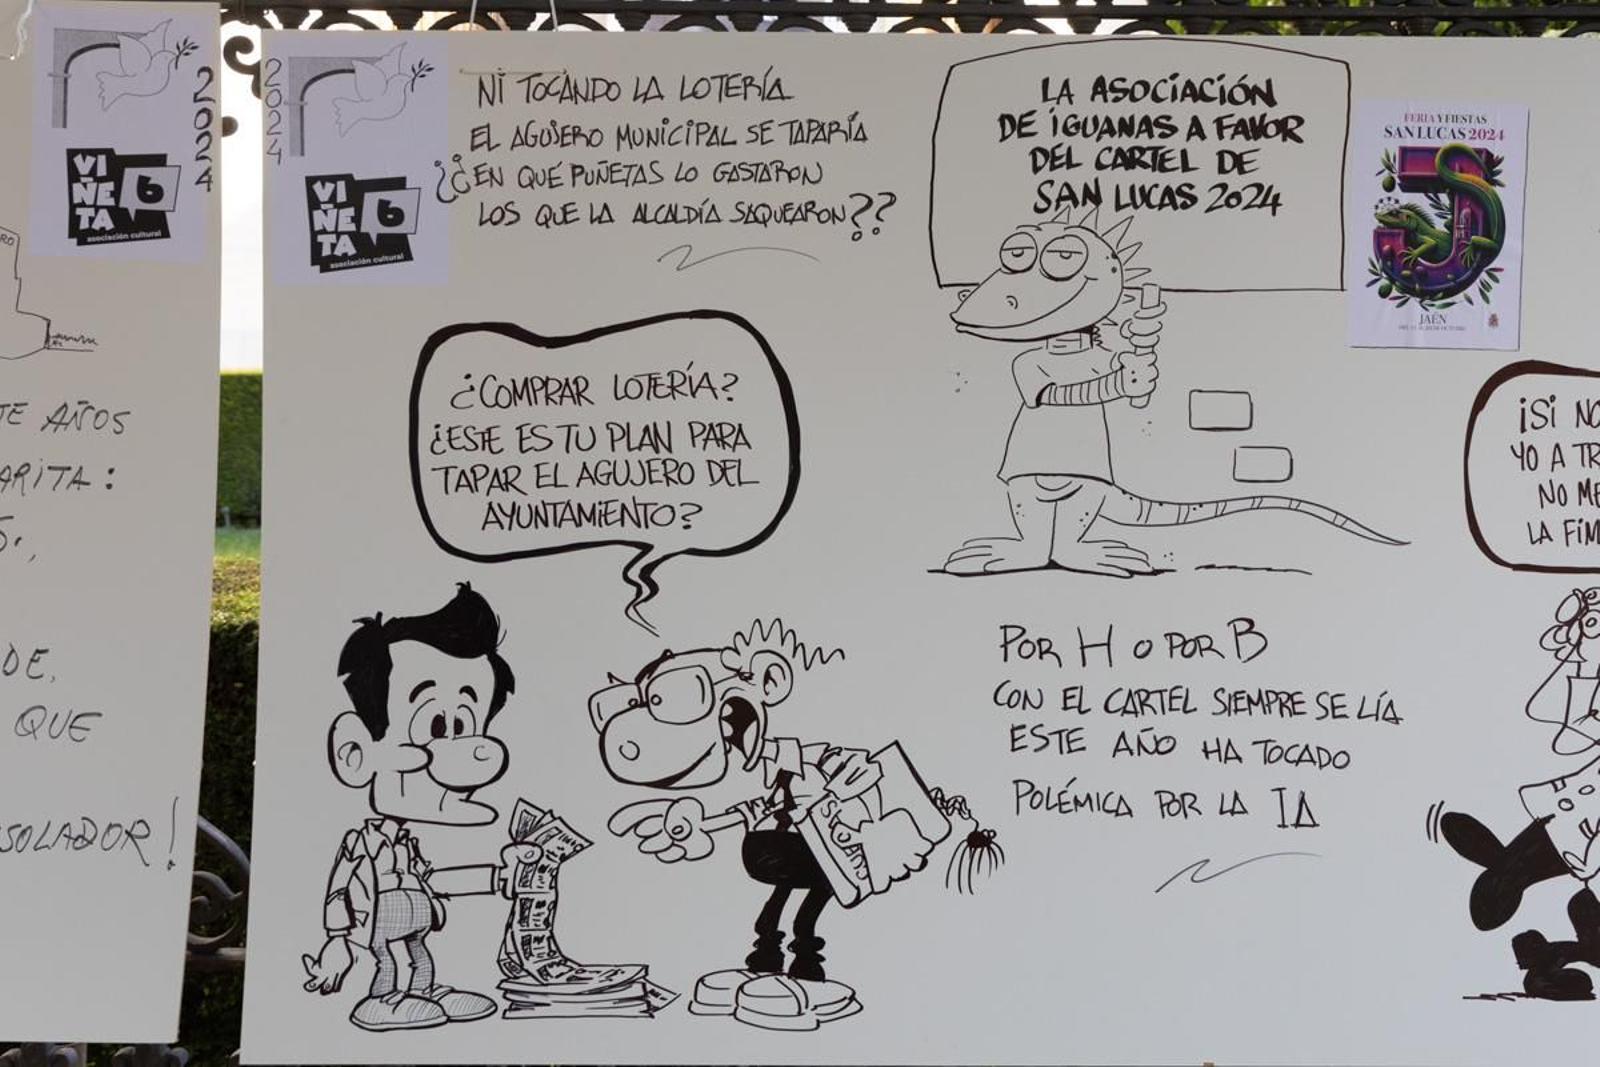 2024
VIÑETA 6
asociación cultural
TE AÑOS
ARITA:
DE,
QUE
SOLADOR!
2024
VIÑETA 6
asociación cultural
NI TOCANDO LA LOTERÍA
EL AGUJERO MUNICIPAL SE TAPARÍA
¿¿EN QUÉ PUÑETAS LO GASTARON
LOS QUE LA ALCALDÍA SAQUEARON??
¿COMPRAR LOTERÍA?
¿ESTE ES TU PLAN PARA
TAPAR EL AGUJERO DEL
AYUNTAMIENTO?
LA ASOCIACIÓN
DE IGUANAS A FAVOR
DEL CARTEL DE
SAN LUCAS 2024
FERIA Y FIESTAS
SAN LUCAS 2024
JAÉN
POR H O POR B
CON EL CARTEL SIEMPRE SE LÍA
ESTE AÑO HA TOCADO
POLÉMICA POR LA IA
¡SI NO
YO A TR
NO ME
LA FIM